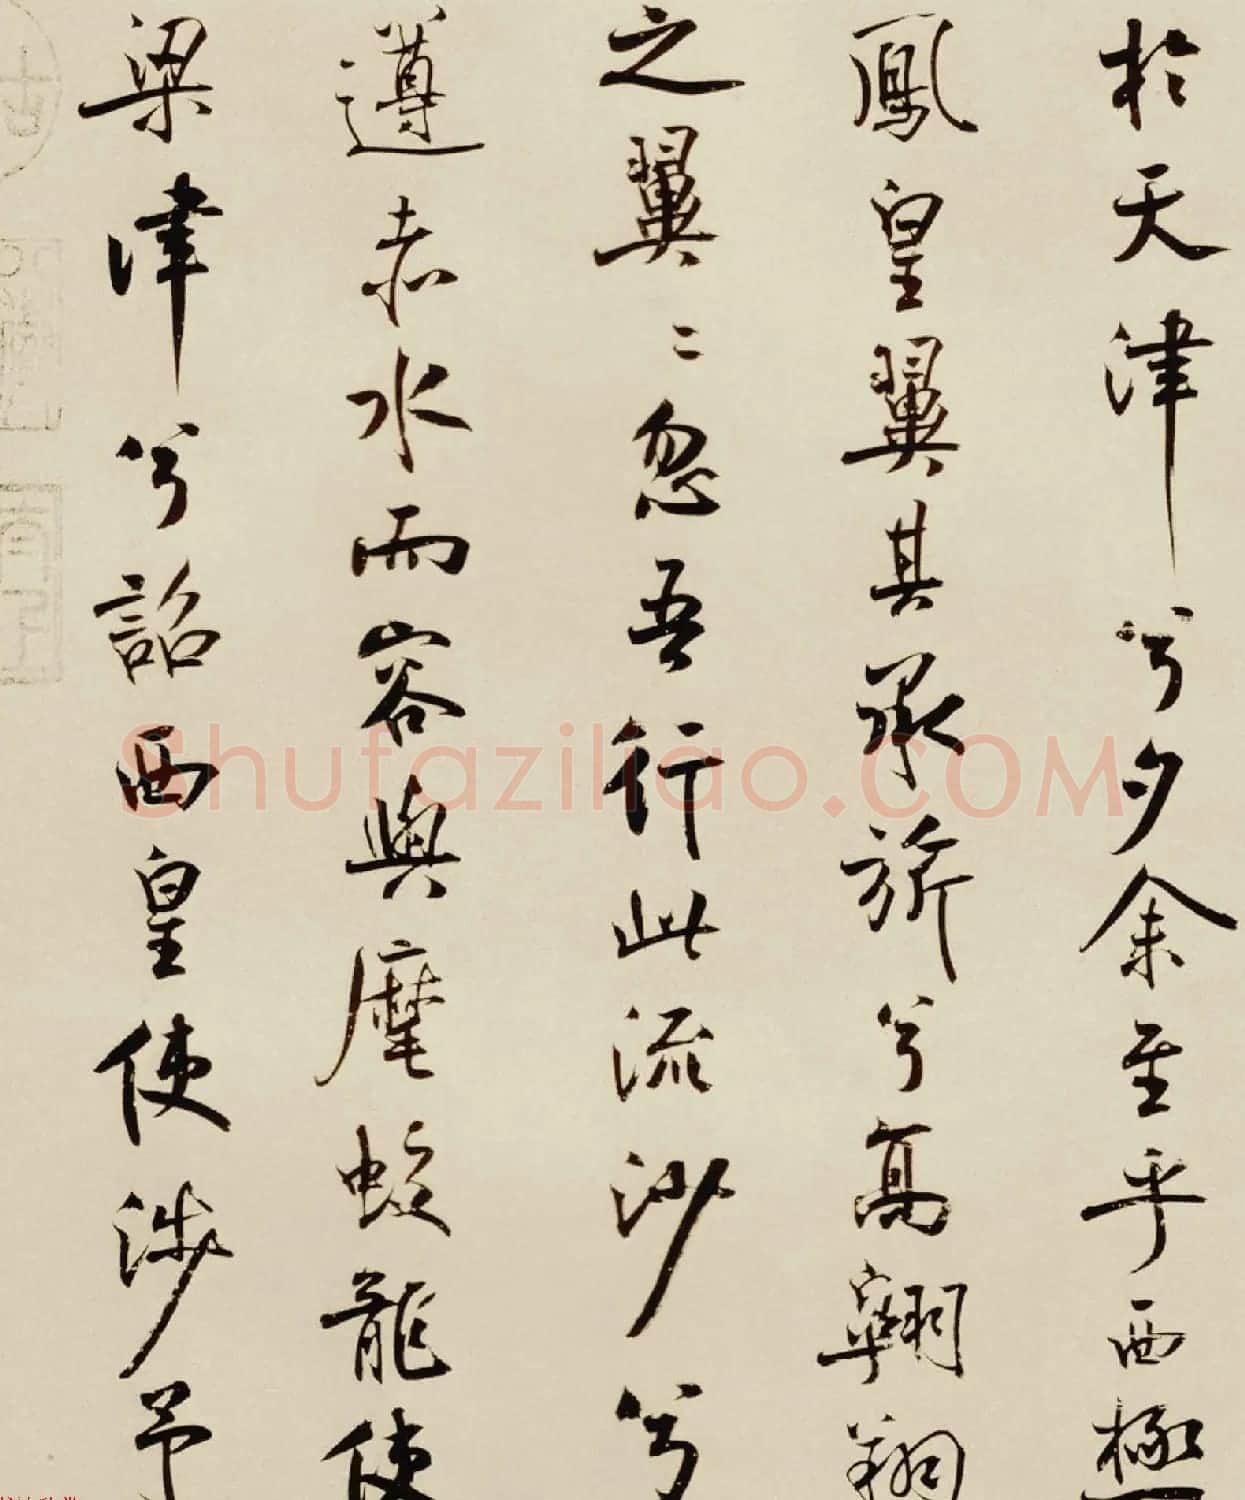 於天津兮夕余至乎西極
鳳皇翼其承旂兮高翱翔
之翼〻忽吾行此流沙兮
遵赤水而容與麾蛟龍使
梁津兮詔西皇使涉予
Shufaziliao.COM